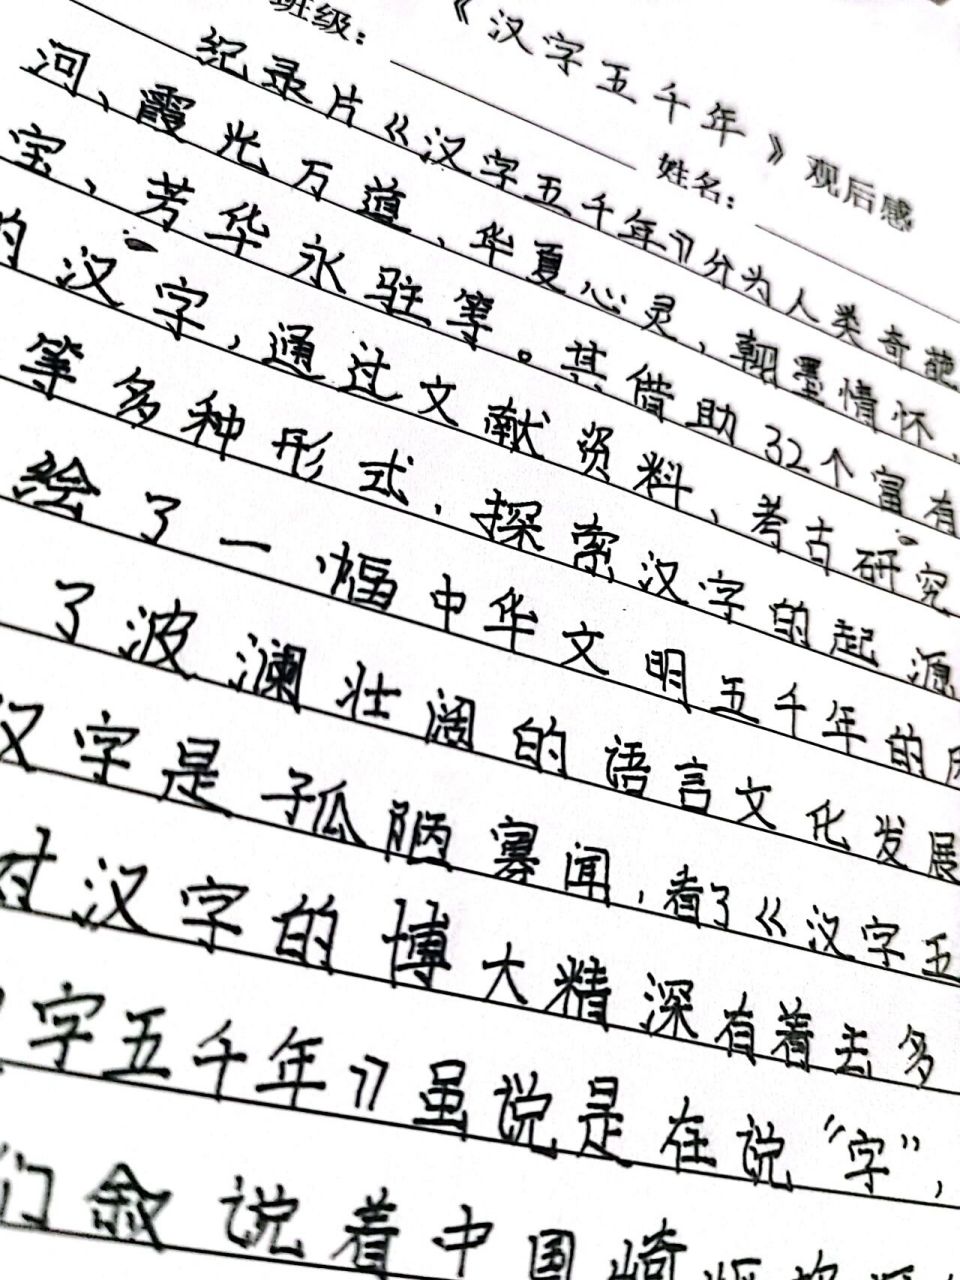 《汉字五千年》观后感
班级： 姓名：
纪录片《汉字五千年》分为人类奇葩
河、霞光万道、华夏心灵，翰墨情怀、
宝、芳华永驻等。其借助32个富有
的汉字，通过文献资料、考古研究
等多种形式，探索汉字的起源
绘了一幅中华文明五千年的
了波澜壮阔的语言文化发展
汉字是孤陋寡闻，看了《汉字五
对汉字的博大精深有着去多
字五千年》虽说是在说“字”，
们叙说着中国崎